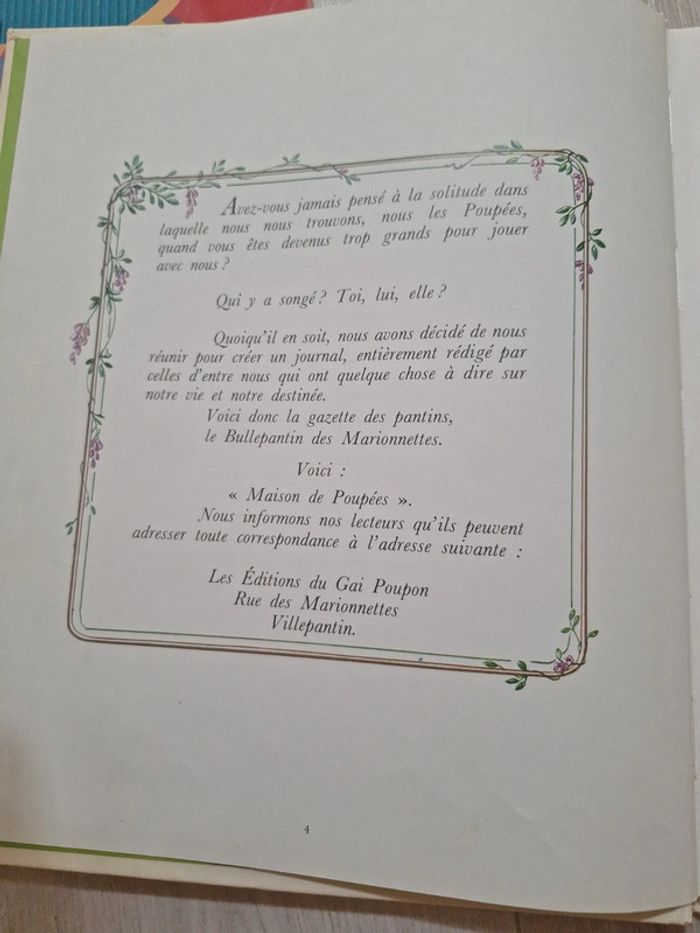 Avez-vous jamais pensé à la solitude dans
laquelle nous nous trouvons, nous les Poupées,
quand vous êtes devenus trop grands pour jouer
avec nous ?
Qui y a songé ? Toi, lui, elle ?
Quoiqu'il en soit, nous avons décidé de nous
réunir pour créer un journal, entièrement rédigé par
celles d'entre nous qui ont quelque chose à dire sur
notre vie et notre destinée.
Voici donc la gazette des pantins,
le Bullepantin des Marionnettes.
Voici :
« Maison de Poupées ».
Nous informons nos lecteurs qu'ils peuvent
adresser toute correspondance à l'adresse suivante :
Les Éditions du Gai Poupon
Rue des Marionnettes
Villepantin.
4